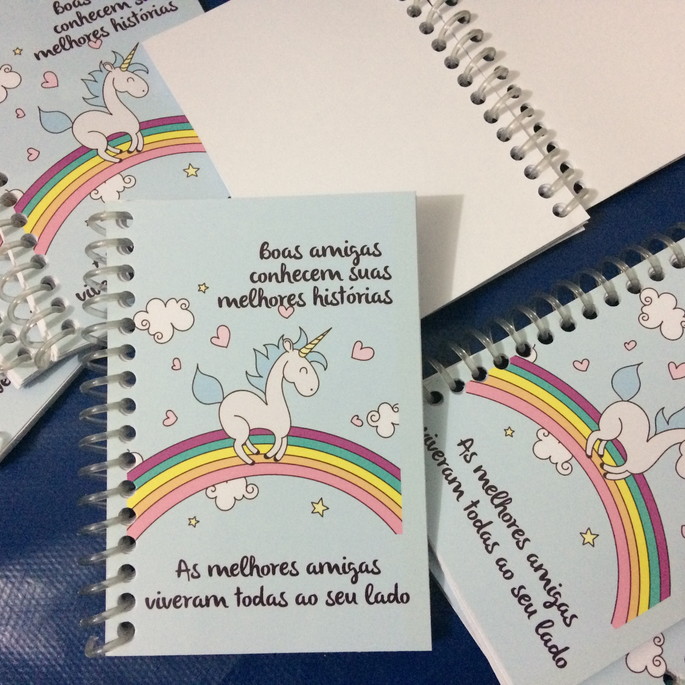 Boas
conhecem su
melhores histórias
Boas amigas
conhecem suas
melhores histórias
As melhores amigas
viveram todas ao seu lado
As melhores amigas
viveram todas ao seu lado